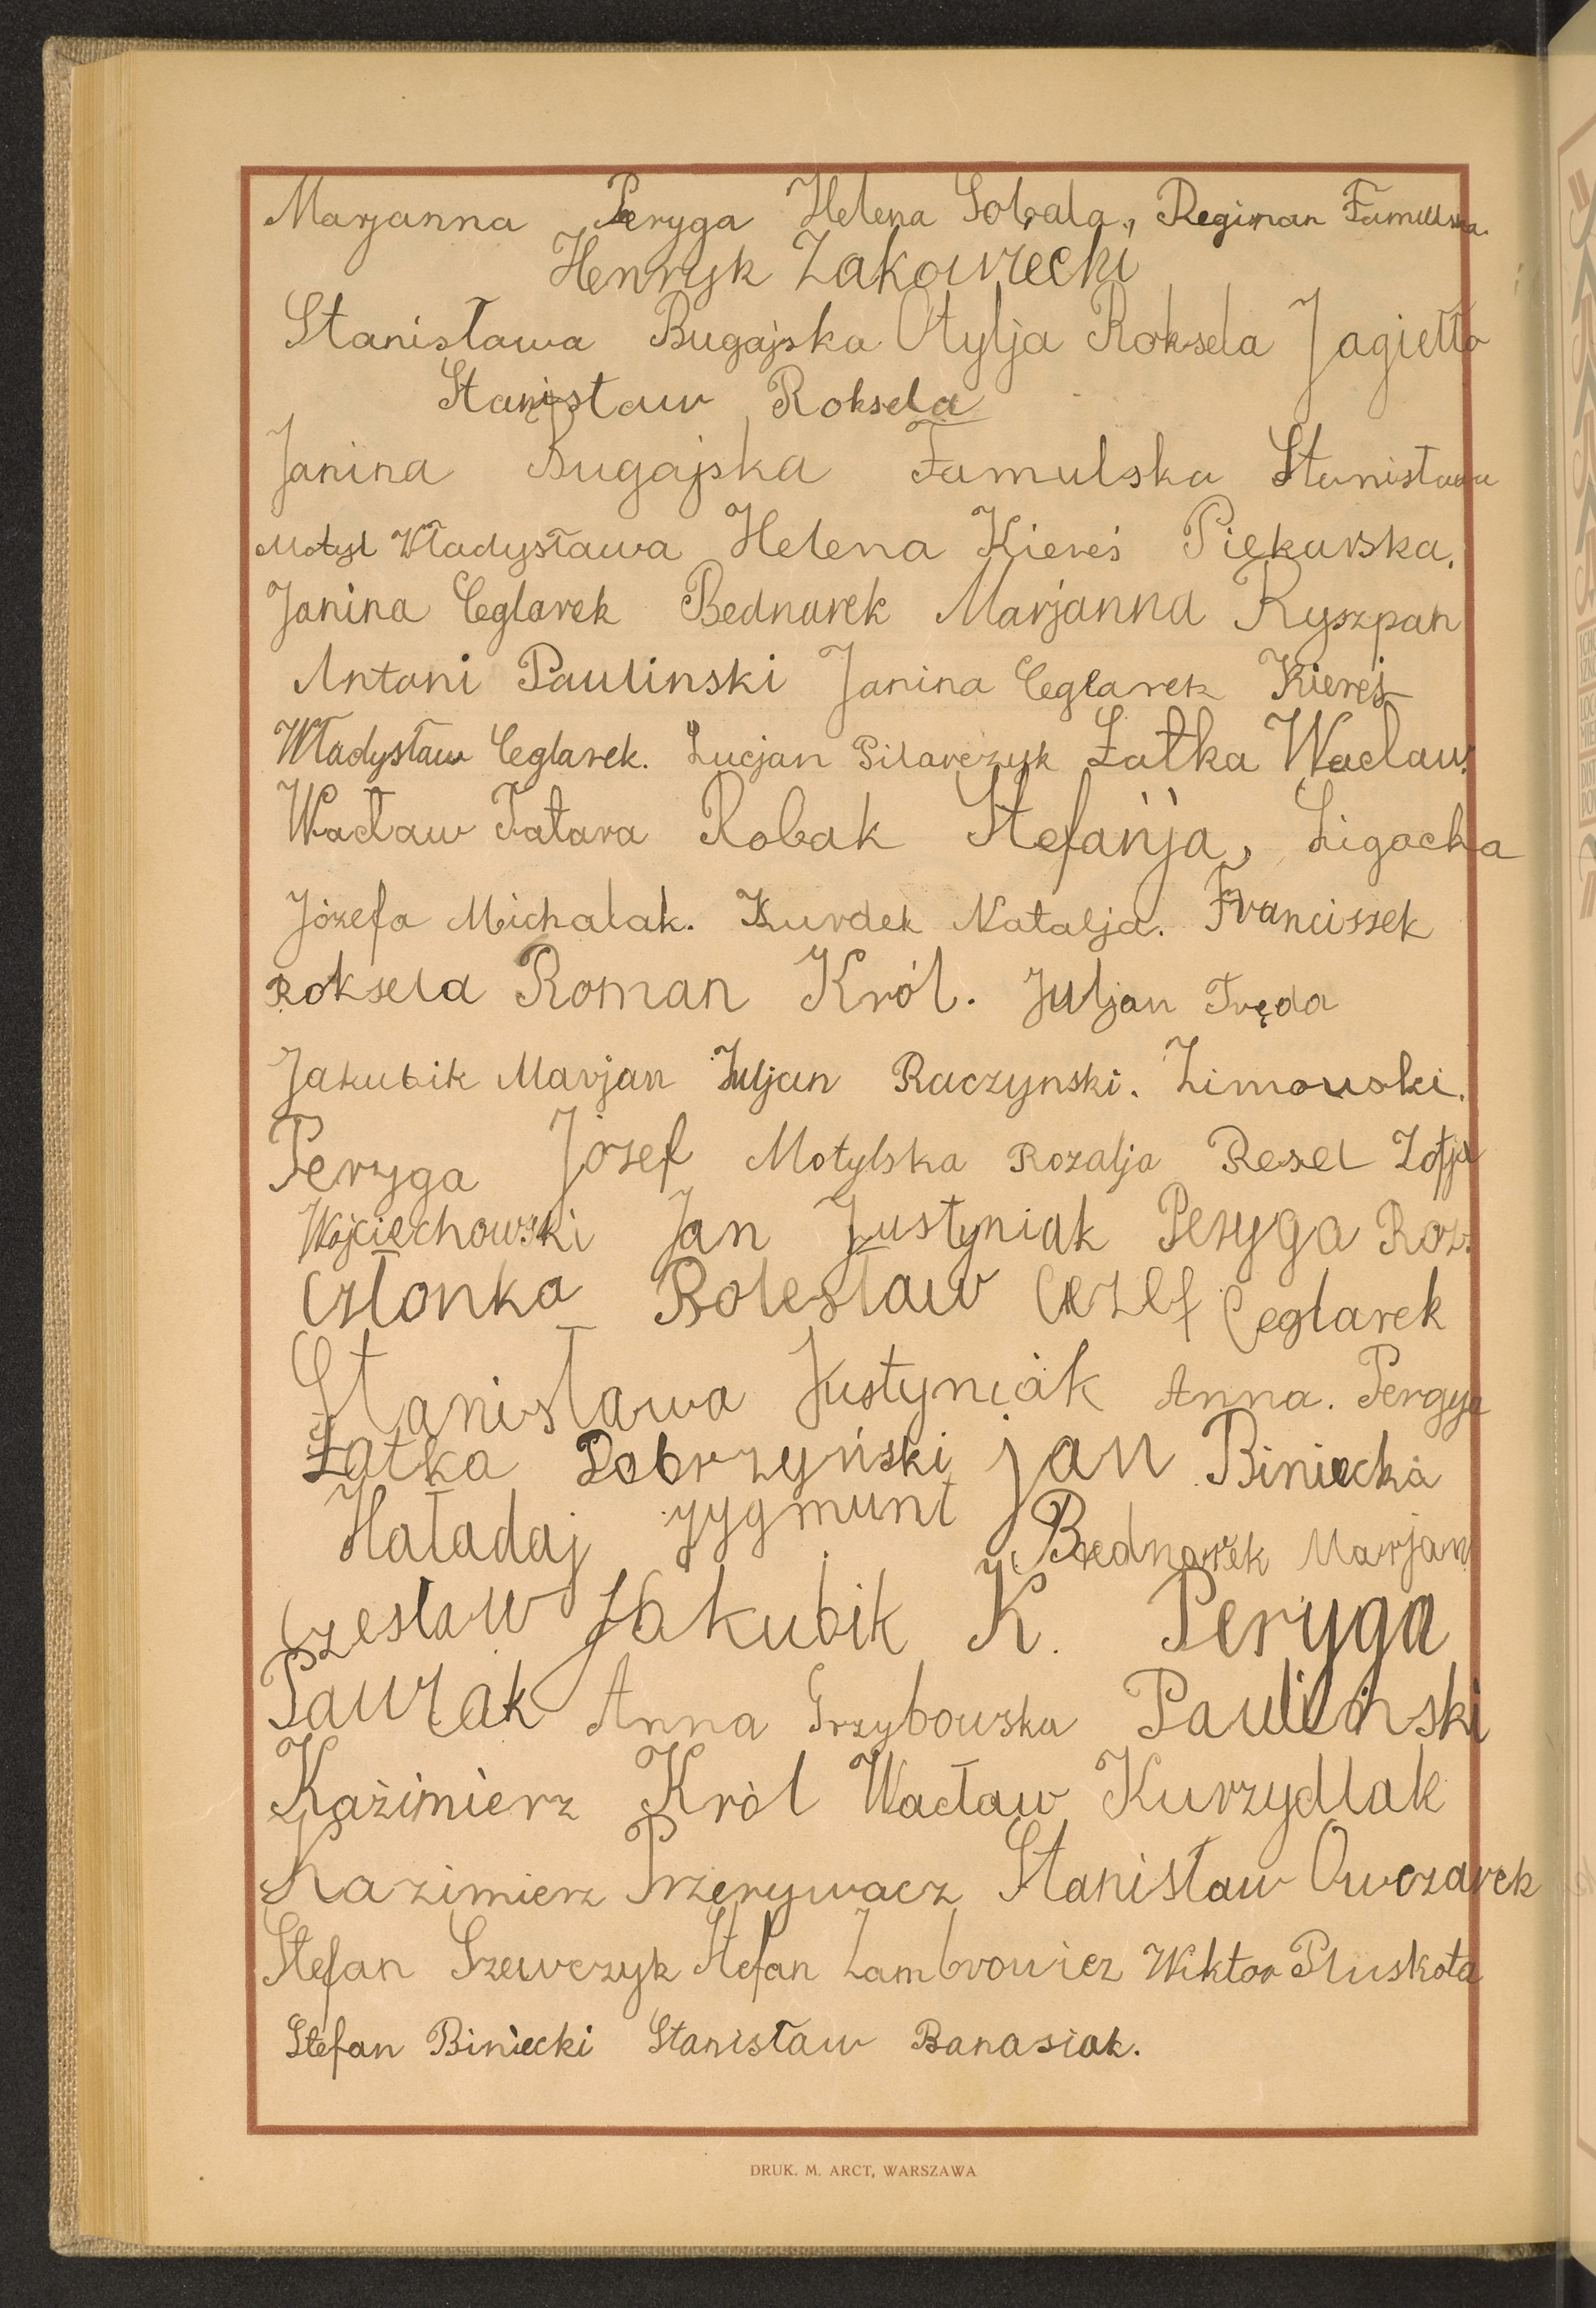 Marjanna Peryga Helena Sobala, Reginan Famulska.
Henryk Zakowiecki
Stanisława Bugajska Otylja Roksela Jagiełło
Stanisław Roksela
Janina Bugajska Famulska Stanisława
Motyl Władysława Helena Kiereś Piekarska.
Janina Ceglarek Bednarek Marjanna Ryszpan
Antoni Paulinski Janina Ceglarek Kiereś
Władysław Ceglarek. Lucjan Pilarczyk Łatka Wacław.
Wacław Tatara Robak Stefanja, Ligocka
Józefa Michalak. Kurdek Natalja. Franciszek
Roksela Roman Król. Juljan Tręda
Jakubik Marjan Juljan Raczynski. Zimowski.
Peryga Józef Motylska Rozalja Resel Zofja
Wojciechowski Jan Justyniak Peryga Roz.
Członka Bolesław Cezef Ceglarek
Stanisława Justyniak Anna. Pergya
Łatka Dobrzyński jan Biniecka
Haładaj zygmunt Bednarek Marjan
Czesław Jakubik K. Peryga
Pawlak Anna Grzybowska Pauliński
Kazimierz Król Wacław Kurzydlak
Kazimierz Przerywacz Stanisław Owczarek
Stefan Szewczyk Stefan Zambrowicz Wiktor Pluskota
Stefan Biniecki Stanisław Banasiak.
DRUK. M. ARCT, WARSZAWA